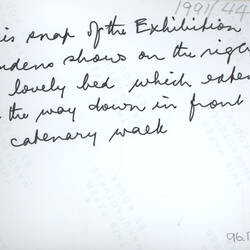 1991/44
is snap of the Exhibition
dens shows on the rig
lovely bed which exten
the way down in front
catenary walk
96.P